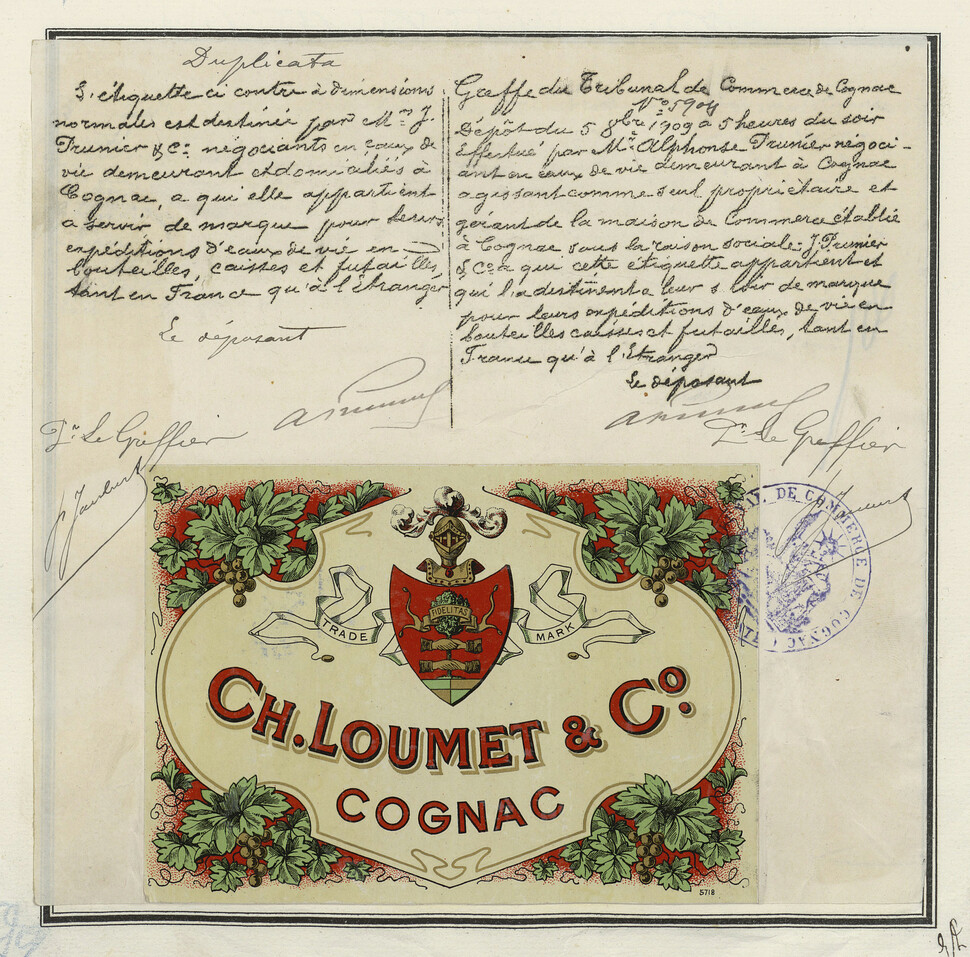 Duplicata
L'étiquette ci contre à dimensions
normales est destinée par Mrs J.
Prunier & Cie négociants en eaux de
vie demeurant et domiciliés à
Cognac, a qui elle appartient
a servir de marque pour leurs
expéditions d'eaux de vie en
bouteilles, caisses et futailles,
tant en France qu'à l'Etranger
Le déposant
APrunier
Pr Le Greffier
Greffe du Tribunal de Commerce de Cognac
No 5904
Dépôt du 5 8bre 1909 à 5 heures du soir
Effectué par Mr Alphonse Prunier négoci-
ant en eaux de vie demeurant à Cognac
agissant comme seul propriétaire et
gérant de la maison de Commerce établie
à Cognac sous la raison sociale: J. Prunier
& Co a qui cette étiquette appartient et
qui l'a destinent a leur s voir de marque
pour leurs expéditions d'eaux de vie en
bouteilles caisses et futailles, tant en
France qu'à l'Etranger
Le déposant
APrunier
Pr Le Greffier
FIDELITAS
TRADE MARK
CH. LOUMET & Co.
COGNAC
5718
DE COMMERCE DE COGNAC